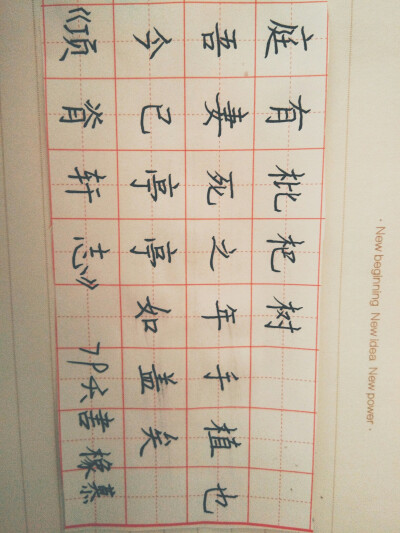 庭有枇杷树
吾妻死之年手植也
今已亭亭如盖矣
《顶脊轩志》
· New beginning New idea New power ·